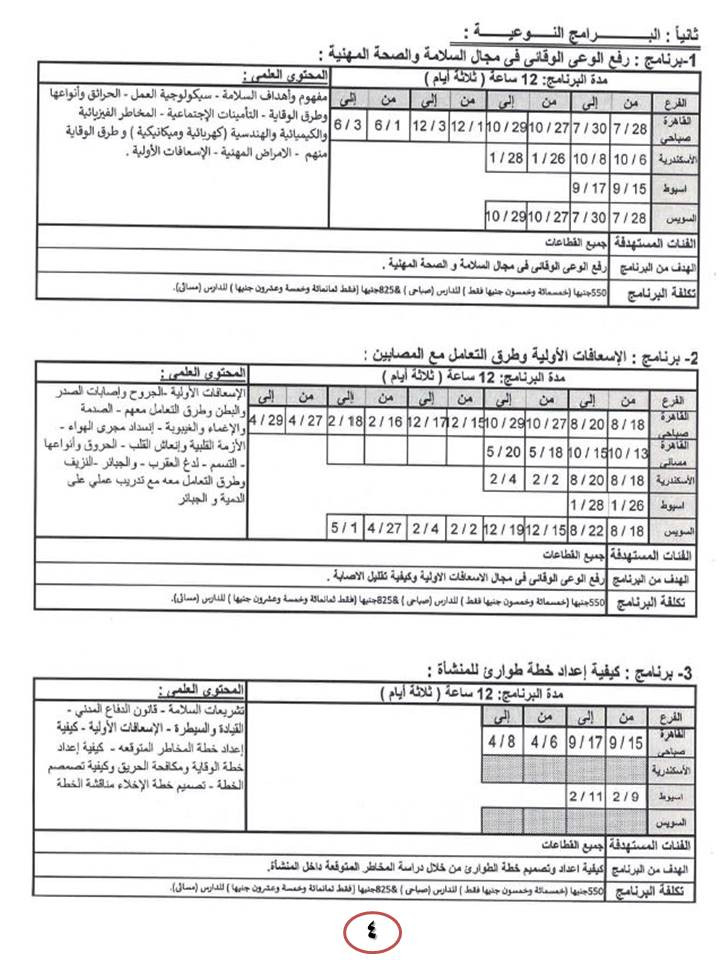 ثانياً : البـــــرامج النـــوعيـــة :
1-برنامج : رفع الوعى الوقائى فى مجال السلامة والصحة المهنية :
مدة البرنامج: 12 ساعة ( ثلاثة أيام ) المحتوى العلمى :
الفرع من إلى من إلى من إلى من إلى
القاهرة صباحي 7 / 28 7 / 30 10 / 27 10 / 29 12 / 1 12 / 3 6 / 1 6 / 3
الأسكندرية 10 / 6 10 / 8 1 / 26 1 / 28
اسيوط 9 / 15 9 / 17
السويس 7 / 28 7 / 30 10 / 27 10 / 29
مفهوم وأهداف السلامة - سيكولوجية العمل - الحرائق وأنواعها
وطرق الوقاية - التأمينات الإجتماعية - المخاطر الفيزيائية
والكيميائية والهندسية (كهربائية وميكانيكية ) و طرق الوقاية
منهم - الامراض المهنية - الإسعافات الأولية .
الفئات المستهدفة جميع القطاعات
الهدف من البرنامج رفع الوعى الوقائى فى مجال السلامة و الصحة المهنية .
تكلفة البرنامج 550جنيها (خمسمائة وخمسون جنيها فقط ) للدارس (صباحى ) &825جنيها (فقط ثمانمائة وخمسة وعشرون جنيها ) للدارس (مسائى).
2- برنامج : الإسعافات الأولية وطرق التعامل مع المصابين :
مدة البرنامج: 12 ساعة ( ثلاثة أيام ) المحتوى العلمى :
الفرع من إلى من إلى من إلى من إلى من إلى
القاهرة صباحى 8 / 18 8 / 20 10 / 27 10 / 29 12 / 15 12 / 17 2 / 16 2 / 18 4 / 27 4 / 29
القاهرة مسائى 10 / 13 10 / 15 5 / 18 5 / 20
الأسكندرية 8 / 18 8 / 20 2 / 2 2 / 4
اسيوط 1 / 26 1 / 28
السويس 8 / 18 8 / 22 12 / 15 12 / 19 2 / 2 2 / 4 4 / 27 5 / 1
الإسعافات الأولية -الجروح وإصابات الصدر
والبطن وطرق التعامل معهم - الصدمة
والإغماء والغيبوبة - إنسداد مجرى الهواء -
الأزمة القلبية وإنعاش القلب - الحروق وأنواعها
- التسمم - لدغ العقرب - والجبائر -النزيف
وطرق التعامل معه مع تدريب عملي على
الدمية و الجبائر
الفئات المستهدفة جميع القطاعات
الهدف من البرنامج رفع الوعى الوقائى فى مجال الاسعافات الاولية وكيفية تقليل الاصابة .
تكلفة البرنامج 550جنيها (خمسمائة وخمسون جنيها فقط ) للدارس (صباحى ) &825جنيها (فقط ثمانمائة وخمسة وعشرون جنيها ) للدارس (مسائى).
3- برنامج : كيفية إعداد خطة طوارئ للمنشأة :
مدة البرنامج: 12 ساعة ( ثلاثة أيام ) المحتوى العلمى :
الفرع من إلى من إلى
القاهرة صباحى 9 / 15 9 / 17 4 / 6 4 / 8
الأسكندرية
اسيوط 2 / 9 2 / 11
السويس
تشريعات السلامة - قانون الدفاع المدني -
القيادة والسيطرة - الإسعافات الأولية - كيفية
إعداد خطة المخاطر المتوقعه - كيفية إعداد
خطة الوقاية ومكافحة الحريق وكيفية تصمصم
الخطة - تصميم خطة الإخلاء مناقشة الخطة
الفئات المستهدفة جميع القطاعات
الهدف من البرنامج كيفية اعداد وتصميم خطة الطوارئ من خلال دراسة المخاطر المتوقعة داخل المنشأة.
تكلفة البرنامج 550جنيها (خمسمائة وخمسون جنيها فقط ) للدارس (صباحى ) &825جنيها (فقط ثمانمائة وخمسة وعشرون جنيها ) للدارس (مسائى).
٤